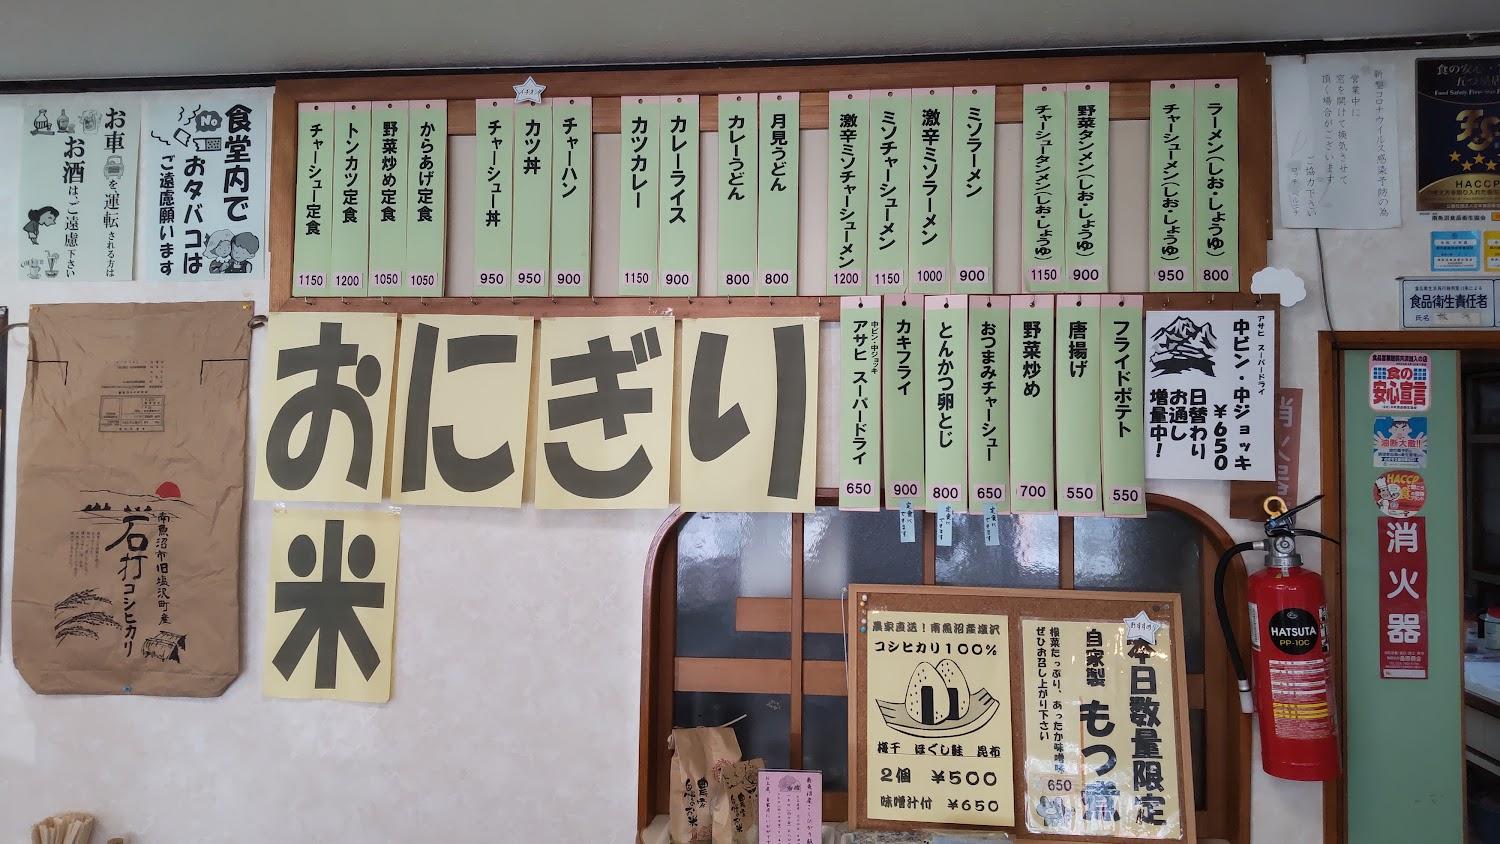 ラーメン(しお・しょうゆ) 800
チャーシューメン(しお・しょうゆ) 950
野菜タンメン(しお・しょうゆ) 900
チャーシュータンメン(しお・しょうゆ) 1150
ミソラーメン 900
激辛ミソラーメン 1000
ミソチャーシューメン 1150
激辛ミソチャーシューメン 1200
月見うどん 800
カレーうどん 800
カレーライス 900
カツカレー 1150
チャーハン 900
カツ丼 950
チャーシュー丼 950
からあげ定食 1050
野菜炒め定食 1050
トンカツ定食 1200
チャーシュー定食 1150
食堂内で
おタバコは
ご遠慮願います
No
お車を運転される方は
お酒はご遠慮下さい
アサヒ スーパードライ
中ビン・中ジョッキ
¥650
日替わり
お通し
増量中!
フライドポテト 550
唐揚げ 550
野菜炒め 700
おつまみチャーシュー 650
とんかつ卵とじ 800
カキフライ 900
中ビン・中ジョッキ
アサヒ スーパードライ 650
定食に
できます
定食に
できます
定食に
できます
おにぎり
米
南魚沼市旧塩沢町産
石打コシヒカリ
農家直送!南魚沼産塩沢
コシヒカリ100%
梅干 ほぐし鮭 昆布
2個 ¥500
味噌汁付 ¥650
おすすめ
本日数量限定
自家製 もつ煮
根菜たっぷり、あったか味噌味
ぜひお召し上がり下さい
650
新型コロナウイルス感染予防の為
営業中に
窓を開けて換気させて
頂く場合がございます
ご協力下さい
食の安心・
五つ星店
HACCP
南魚沼食品衛生協会
食品衛生責任者
氏名
食の
安心宣言
油断大敵!!
HACCP
消火器
消火器
HATSUTA
PP-10C